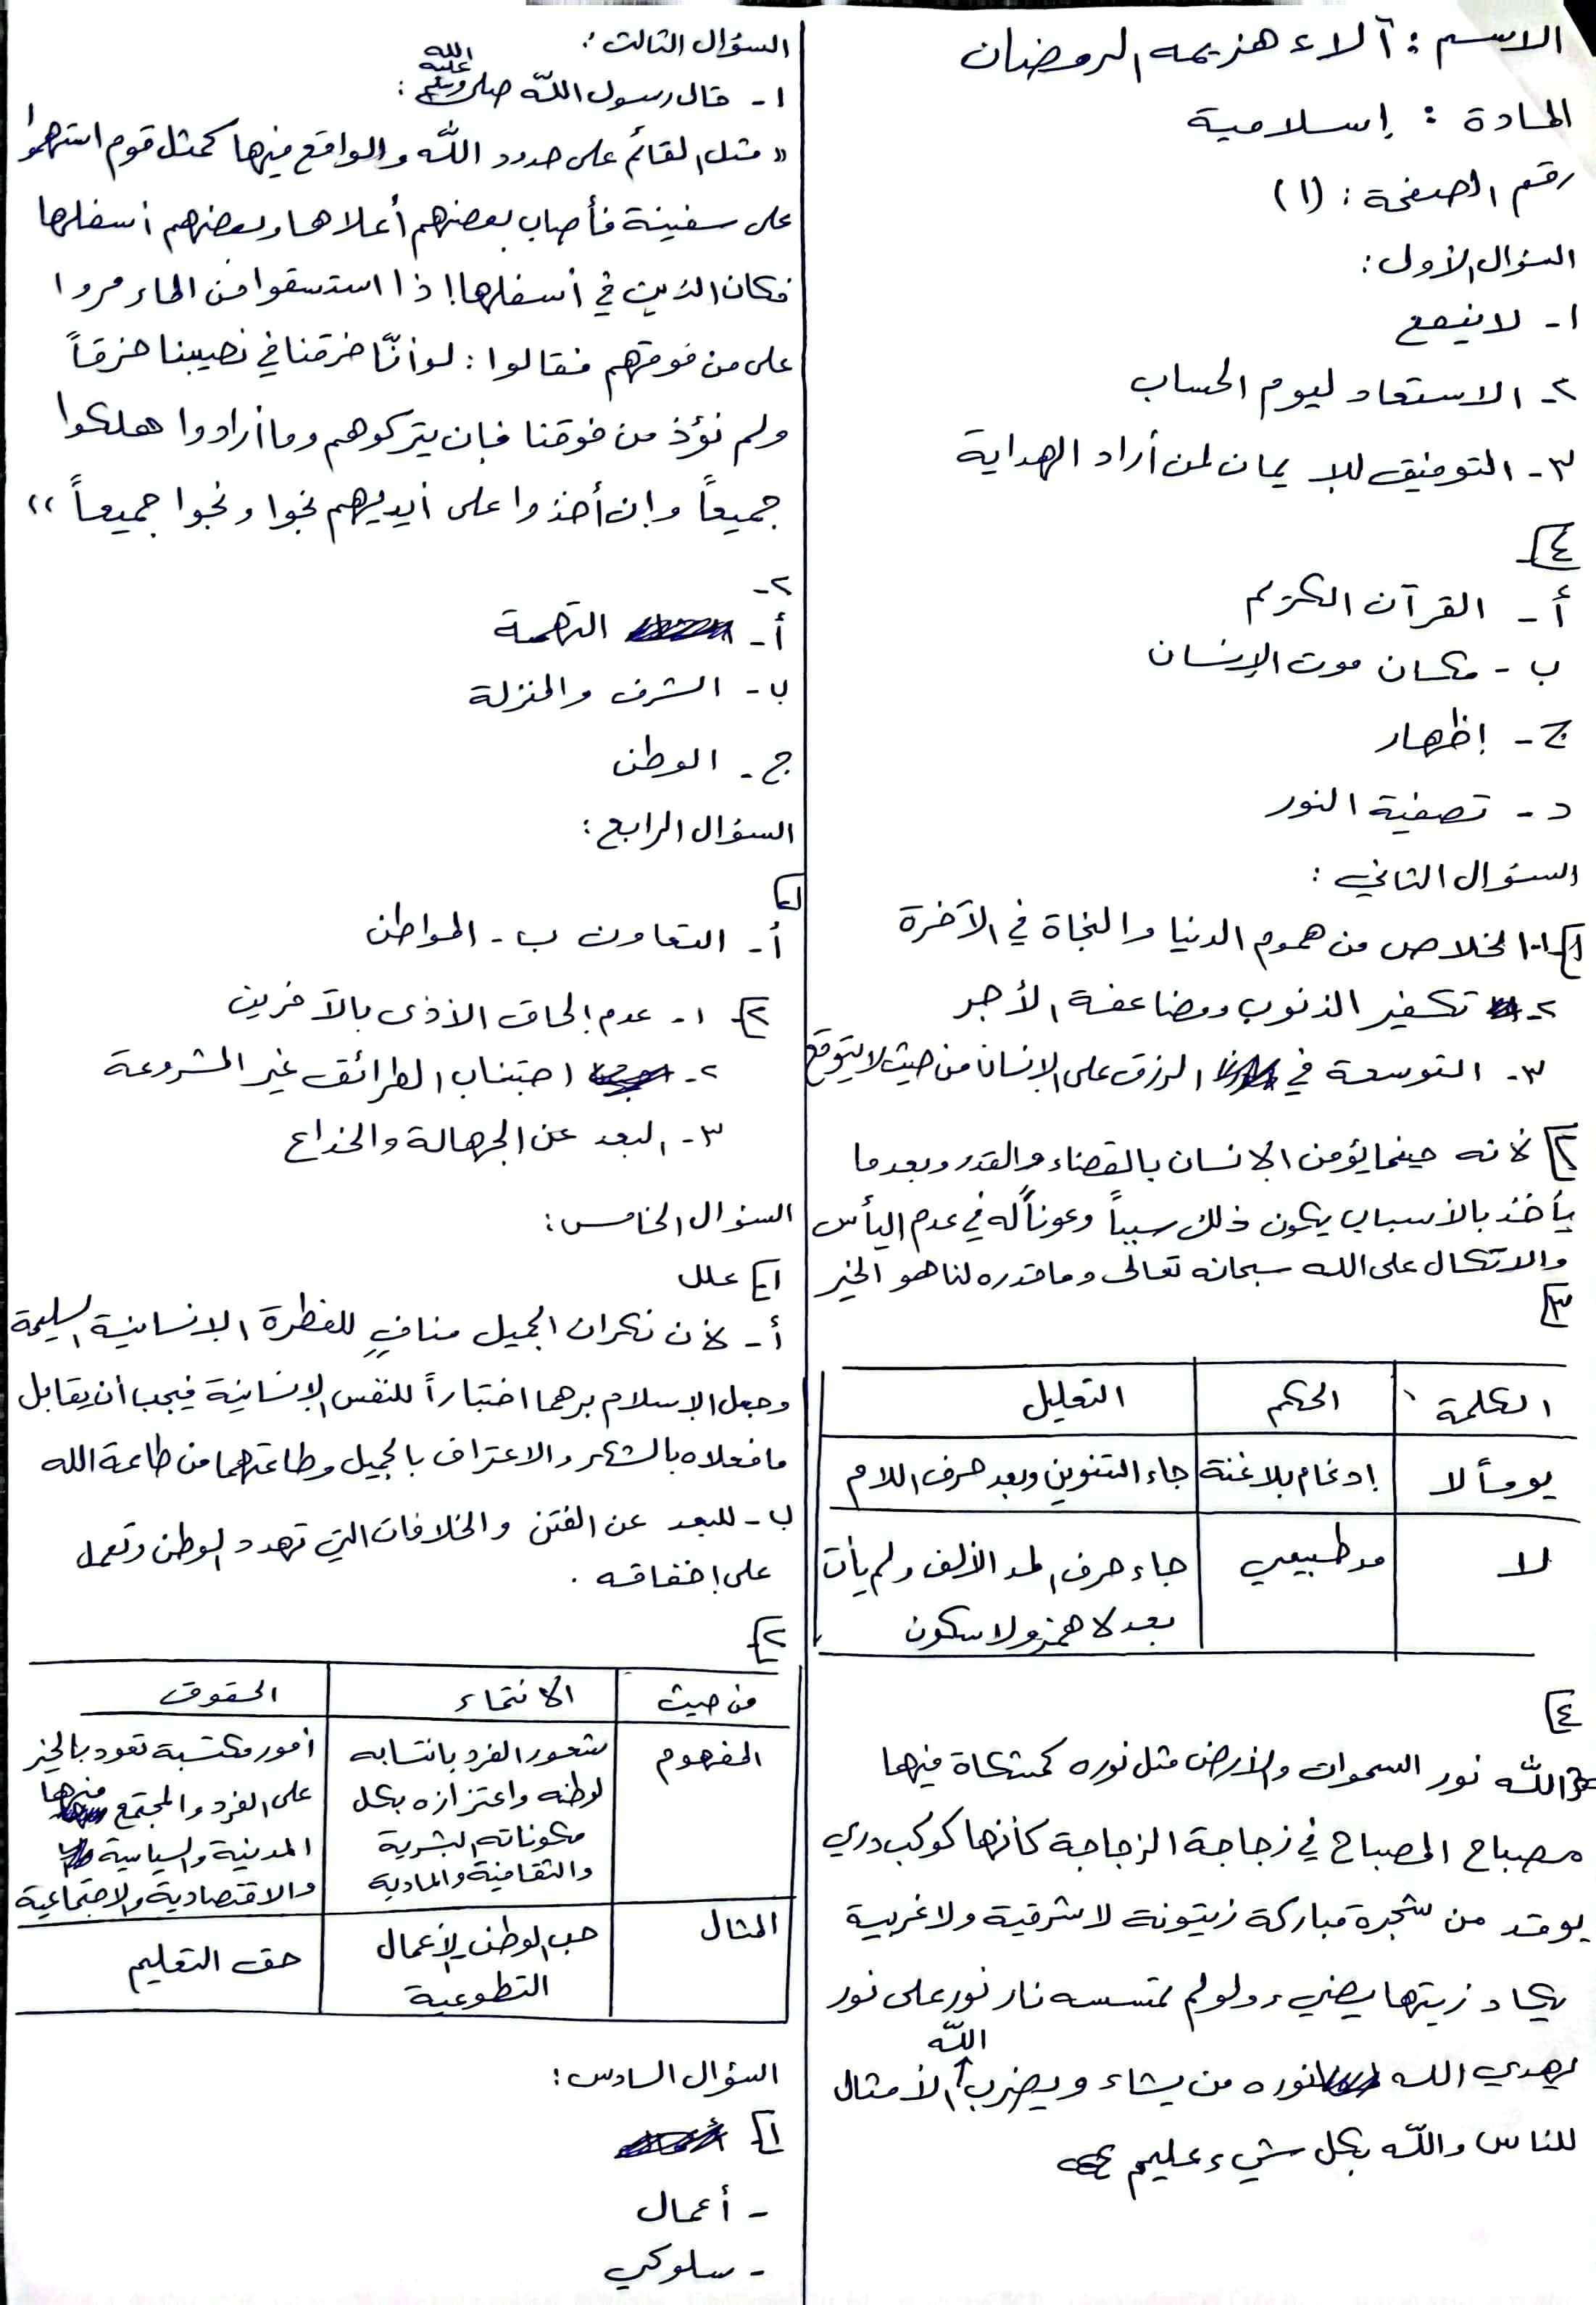 الاسم : آلاء هزيمه الرمضان
المادة : إسلامية
رقم الصفحة : (١)
السؤال الأول :
١- لا ينفع
٢- الاستعاد ليوم الحساب
٣- التوفيق للإيمان لمن أراد الهداية
٤
أ - القرآن الكريم
ب - مكان موت الإنسان
ج - إظهار
د - تصفية النور
السؤال الثاني :
١ ١- الخلاص من هموم الدنيا والنجاة في الآخرة
٢- تكفير الذنوب ومضاعفة الأجر
٣- التوسعة في الرزق على الإنسان من حيث لا يتوقع
٢ لأنه حينما يؤمن الإنسان بالقضاء والقدر وبعدما
يأخذ بالأسباب يكون ذلك سبباً وعوناً له في عدم اليأس
والاتكال على الله سبحانه تعالى وما قدره لنا هو الخير
٣
الكلمة الحكم التعليل
يوماً لا إدغام بلا غنة جاء التنوين وبعد حرف اللام
لا مد طبيعي جاء حرف المد الألف ولم يأت
بعد لا همز ولا سكون
٤
الله نور السموات والأرض مثل نوره كمشكاة فيها
مصباح المصباح في زجاجة الزجاجة كأنها كوكب دري
يوقد من شجرة مباركة زيتونة لا شرقية ولا غربية
يكاد زيتها يضيء ولو لم تمسسه نار نور على نور
يهدي الله لنوره من يشاء ويضرب الله الأمثال
للناس والله بكل شيء عليم
السؤال الثالث :
١- قال رسول الله صلى الله عليه وسلم :
" مثل القائم على حدود الله والواقع فيها كمثل قوم استهموا
على سفينة فأصاب بعضهم أعلاها وبعضهم أسفلها
فكان الذين في أسفلها إذا استسقوا من الماء مروا
على من فوقهم فقالوا : لو أنّا خرقنا في نصيبنا خرقاً
ولم نؤذ من فوقنا فإن يتركوهم وما أرادوا هلكوا
جميعاً وإن أخذوا على أيديهم نجوا ونجوا جميعاً "
٢-
أ - التهمة
ب - الشرف والمنزلة
ج - الوطن
السؤال الرابع :
١
أ - التعاون ب - المواطن
٢ ١- عدم إلحاق الأذى بالآخرين
٢- اجتناب الطرائق غير المشروعة
٣- البعد عن الجهالة والخداع
السؤال الخامس :
١ علل
أ - لأن نكران الجميل منافٍ للفطرة الإنسانية السليمة
وجعل الإسلام برهما اختباراً للنفس الإنسانية فيجب أن يقابل
ما فعلاه بالشكر والاعتراف بالجميل وطاعتهما من طاعة الله
ب - للبعد عن الفتن والخلافات التي تهدد الوطن وتعمل
على إخفاقه .
٢
من حيث الانتماء الحقوق
المفهوم شعور الفرد بانتسابه أمور مكتسبة تعود بالخير
لوطنه واعتزازه بكل على الفرد والمجتمع منها
مكوناته البشرية المدنية والسياسية
والثقافية والمادية والاقتصادية والاجتماعية
المثال حب الوطن الأعمال حق التعليم
التطوعية
السؤال السادس :
١
- أعمال
- سلوكي